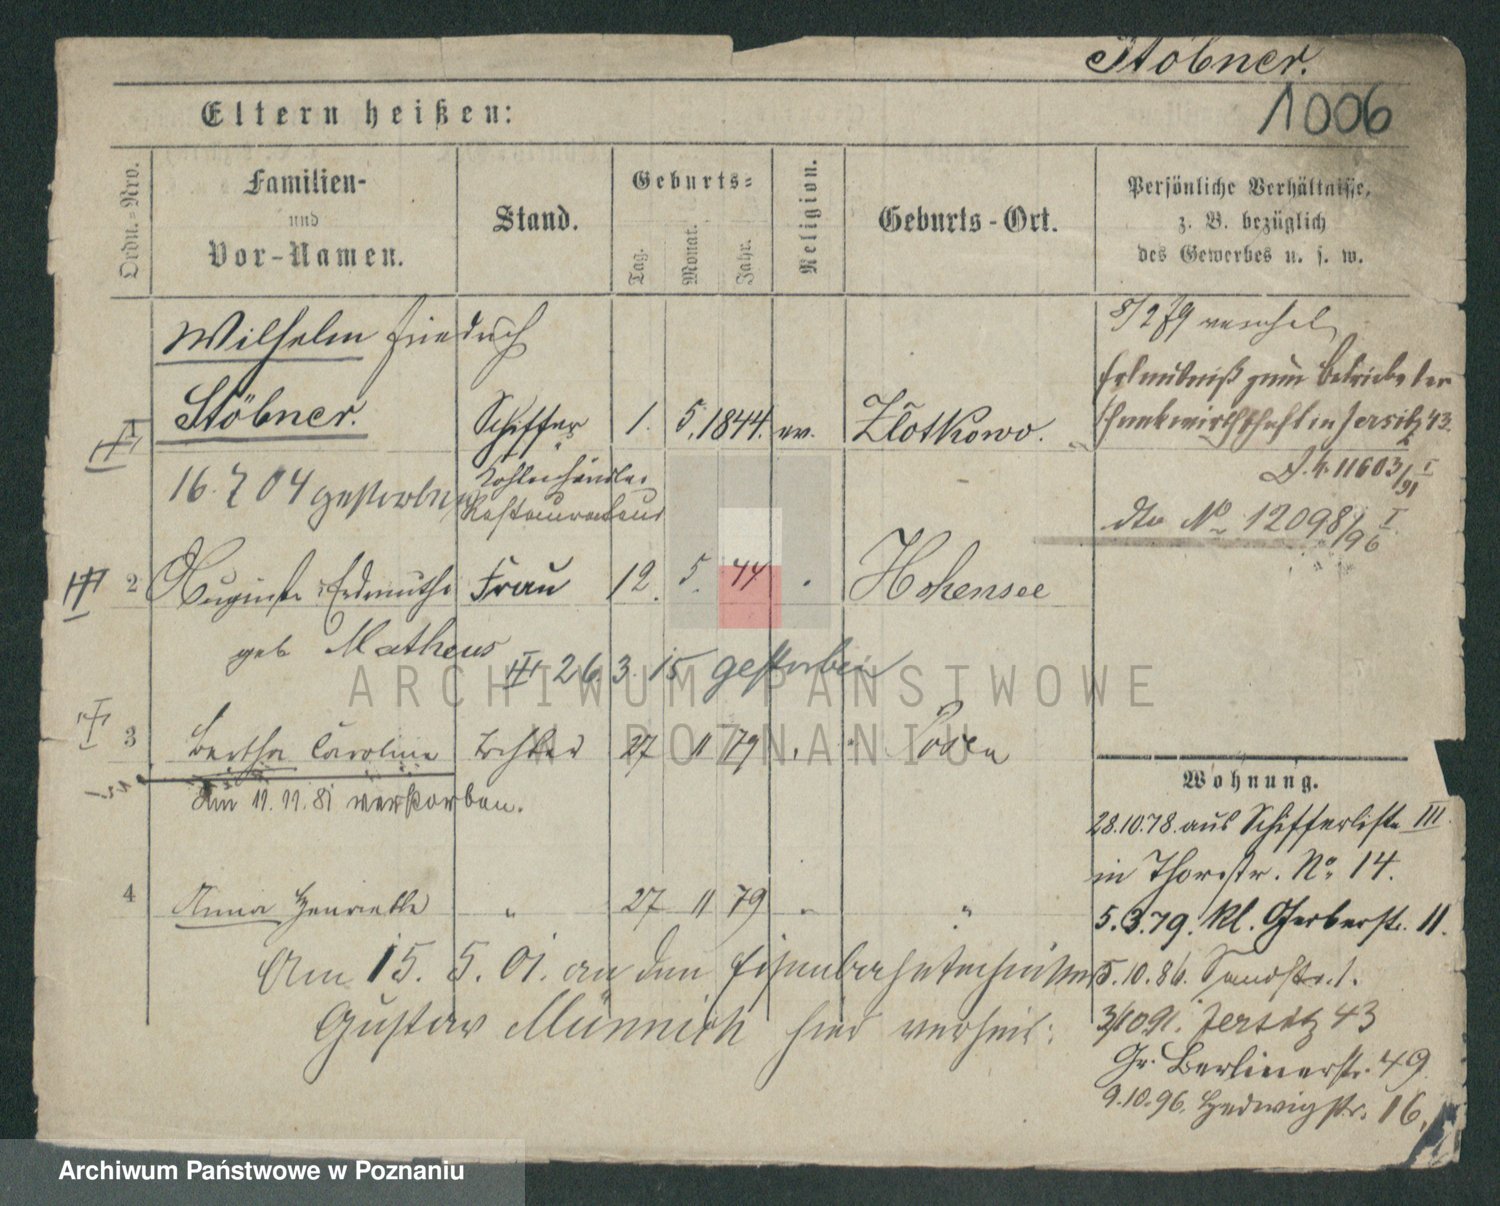 Stöbner.
1006
Eltern heißen:
Ordn.-Nro.
Familien-
und
Vor-Namen.
Stand.
Geburts-
Tag.
Monat.
Jahr.
Religion.
Geburts-Ort.
Persönliche Verhältnisse,
z. B. bezüglich
des Gewerbes u. s. w.
Wilhelm Friedrich
Stöbner. Schiffer 1. 5. 1844. ev. Zlotkowo.
Kohlenhändler
16. 7 04 gestorben Restaurateur
8/2 79
Erlaubniß zum Betriebe der
Schankwirthschaft in Jersitz 43.
11603/91 I
dto No 12098/96 I
2 Auguste Erdmuthe Frau 12. 5. 44 Hohensee
geb Matheus
26. 3. 15 gestorben
3 Bertha Caroline Tochter 27 11 79 Posen
Am 11. 11. 81 verstorben.
4 Anna Henriette " 27 11 79 "
Am 15. 5. 01. an den Eisenbahntechniker
Gustav Münnich hier verheir:
Wohnung.
28.10.78. aus Schifferliste III.
in Thorstr. No 14.
5.3.79. Kl. Gerberstr. 11.
5.10.86. Sandstr. 1.
3/10 91. Jersitz 43
Gr. Berlinerstr. 49
9.10.96. Hedwigstr. 16.
ARCHIWUM PAŃSTWOWE
W POZNANIU
Archiwum Państwowe w Poznaniu